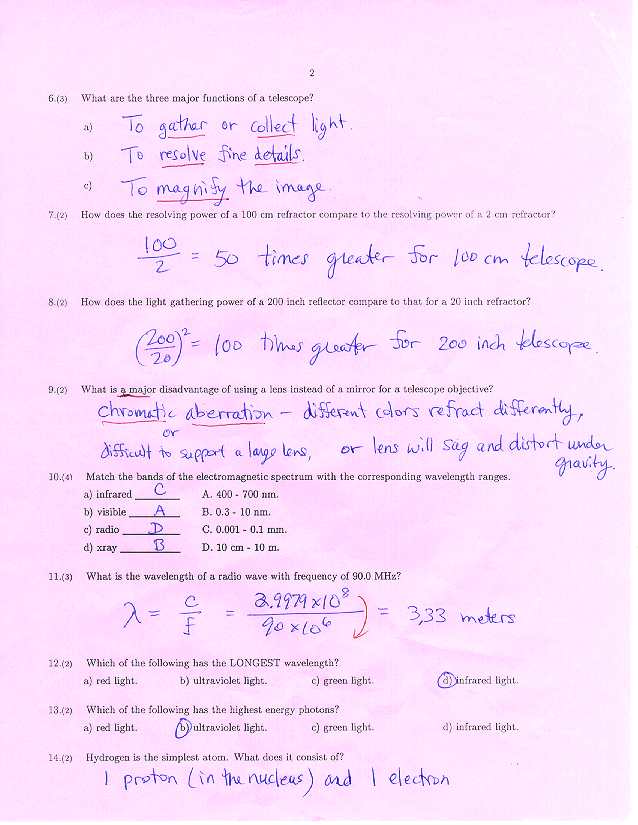 2
6.(3) What are the three major functions of a telescope?
a) To gather or collect light.
b) To resolve fine details.
c) To magnify the image.
7.(2) How does the resolving power of a 100 cm refractor compare to the resolving power of a 2 cm refractor?
100/2 = 50 times greater for 100 cm telescope.
8.(2) How does the light gathering power of a 200 inch reflector compare to that for a 20 inch refractor?
(200/20)² = 100 times greater for 200 inch telescope.
9.(2) What is a major disadvantage of using a lens instead of a mirror for a telescope objective?
Chromatic aberration – different colors refract differently,
or
difficult to support a large lens, or lens will sag and distort under
gravity.
10.(4) Match the bands of the electromagnetic spectrum with the corresponding wavelength ranges.
a) infrared C A. 400 - 700 nm.
b) visible A B. 0.3 - 10 nm.
c) radio D C. 0.001 - 0.1 mm.
d) xray B D. 10 cm - 10 m.
11.(3) What is the wavelength of a radio wave with frequency of 90.0 MHz?
λ = c/f = 2.9979 x 10⁸ / 90 x 10⁶ = 3.33 meters
12.(2) Which of the following has the LONGEST wavelength?
a) red light. b) ultraviolet light. c) green light. d) infrared light.
13.(2) Which of the following has the highest energy photons?
a) red light. b) ultraviolet light. c) green light. d) infrared light.
14.(2) Hydrogen is the simplest atom. What does it consist of?
1 proton (in the nucleus) and 1 electron